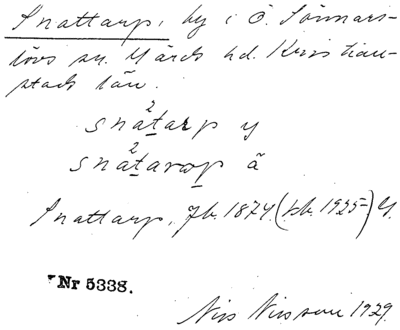 Snattarp, by i Ö. Sönnars-
lövs sn. Gärds hd. Kristian-
stads län.
snatarp y
snatarap ä
Snattarp, Jb. 1874 (tb. 1925) G.
Nr 5338.
Nils Nilsson 1929.